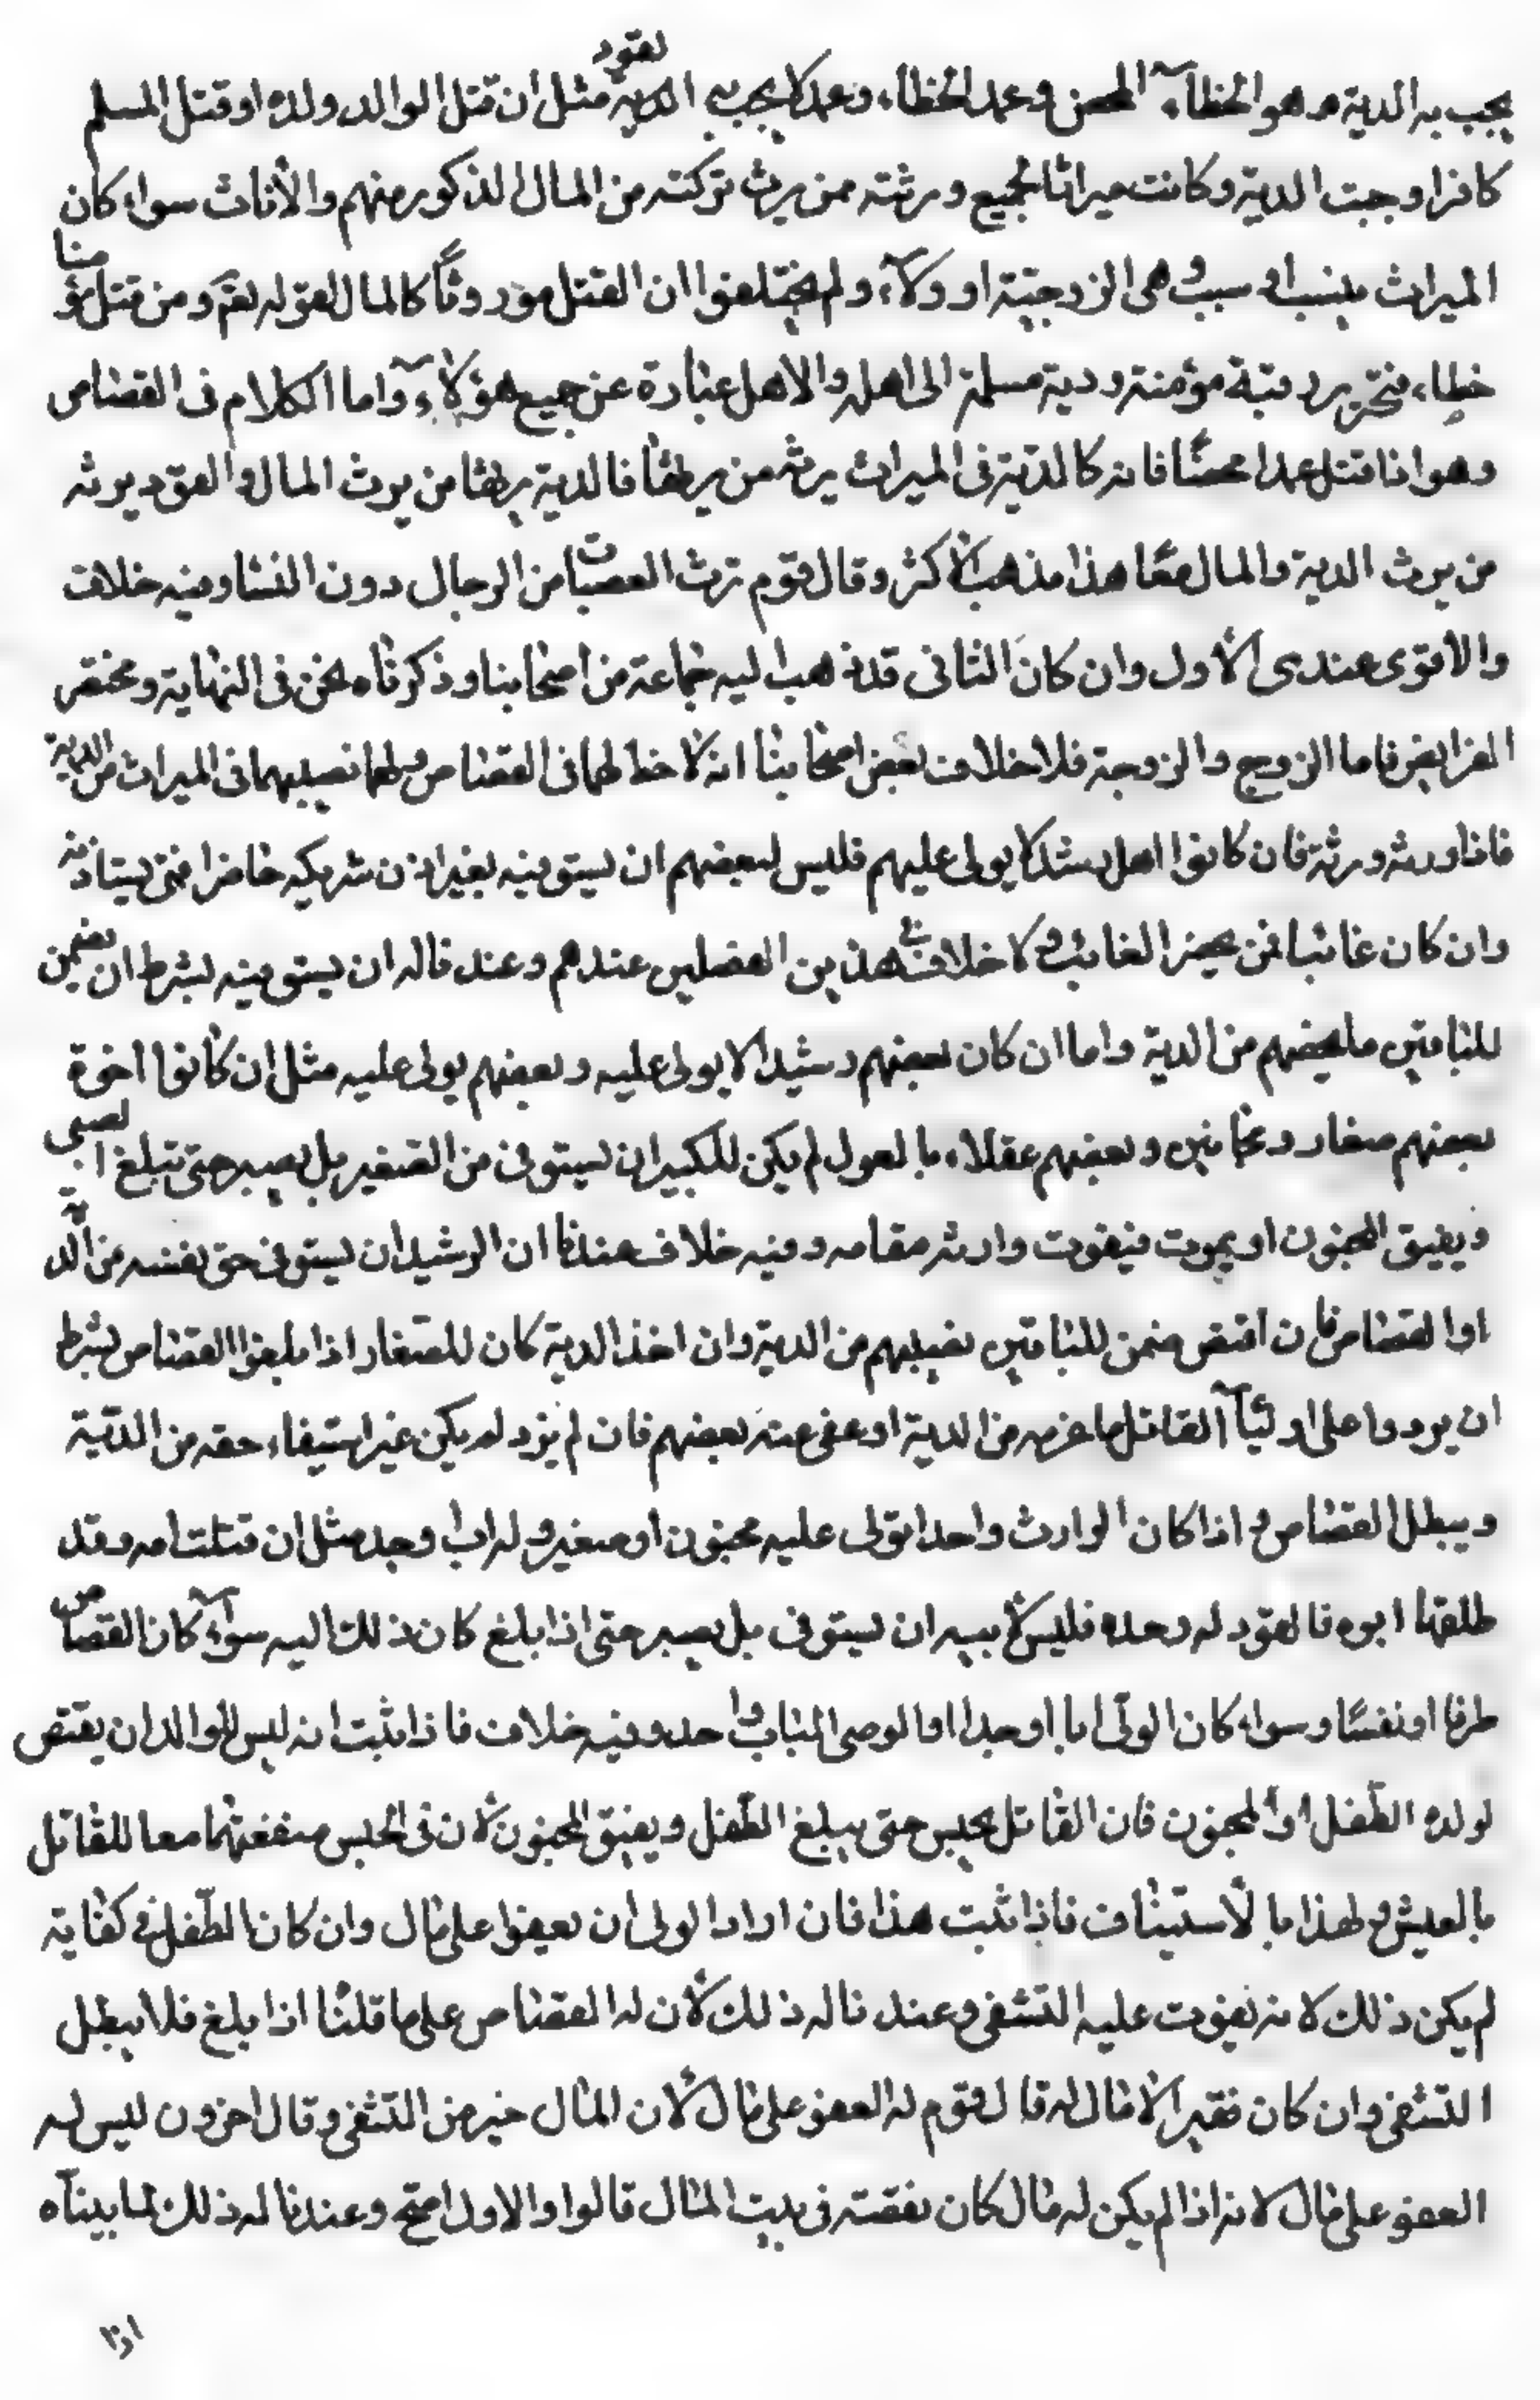 يجب به الدية وهو الخطاء المحض وعمد الخطاء، وعمد لا يجب به القود الدية مثل ان قتل الوالد ولده او قتل المسلم
كافرا وجبت الدية وكانت ميراثا لجميع ورثته ممن يرث تركته من المال الذكور منهم والأناث سواء كان
الميراث بنسب او سبب وهى الزوجية او ولآء، ولم يختلفوا ان العقل موروثًا كالمال لقوله تعم ومن قتل مؤمنا
خطاء، فتحرير رقبة مؤمنة ودية مسلمة الى اهله والاهل عبارة عن جميع هؤلآء، واما الكلام فى القصاص
وهو اذا قتل عمدا محضًا فانه كالدية فى الميراث يرثه من يرثها فالدية يرثها من يرث المال والقود يرثه
من يرث الدية والمال معًا هذا مذهب الأكثر وقال قوم ترث العصبات من الرجال دون النسا وفيه خلاف
والاقوى عندى الأول وان كان الثانى قد ذهب اليه جماعة من اصحابنا وذكرناه نحن فى النهاية ومختصر
الفرايض فاما الزوج والزوجة فلا خلاف بعض اصحابنا انه لا حظ لهما فى القصاص ولهما نصيبهما فى الميراث من الدية
فاذا ورثه ورثة فان كانوا اهل رشد لا يولى عليهم فليس لبعضهم ان يستوفيه بغير اذن شريكه حاضرا فحتى يستاذنه
وان كان غائبا فحتى يحضر الغائب ولا خلاف فى هذين الفصلين عندهم وعندنا له ان يستوفيه بشرط ان يضمن
للباقين ما يخصهم من الدية واما ان كان بعضهم رشيدا لا يولى عليه وبعضهم يولى عليه مثل ان كانوا اخوة
بعضهم صغار ومجانين وبعضهم عقلاء، بالعول لم يكن للكبير ان يستوفى من الصغير بل يصبر حتى تبلغ الصبى
ويفيق المجنون او يموت فيقوت وارثه مقامه وفيه خلاف عندنا ان الرشيد ان يستوفى حق نفسه من الدية
او القصاص فان اقتص ضمن للباقين نصيبهم من الدية وان اخذ الدية كان للصغار اذا بلغوا القصاص بشرط
ان يردوا على اوليآء القاتل ما غرمه من الدية او عفى عنه بعضهم فان لم يرد لم يكن غير استيفاء، حقه من الدّية
ويبطل القصاص واذا كان الوارث واحدا يولى عليه مجنون او صغير وله اب او جد مثل ان قتلت امه وقد
طلقها ابوه فالقود له وحده فليس لأبيه ان يستوفى بل يصبر حتى اذا بلغ كان ذلك اليه سوآء كان القصاص
طرفا او نفسًا وسواء كان الولّى ابا او جدا او الوصى الباب واحد وفيه خلاف فاذا ثبت انه ليس للوالد ان يقتص
لولده الطّفل او المجنون فان القاتل يحبس حتى يبلغ الطّفل ويفيق المجنون لأن فى الحبس منفعتهما معا للقاتل
بالعيش ولهذا بالأستيثاف فاذا ثبت هذا فان اراد الولى ان يعفوا على مال وان كان الطّفل فى كفاية
لم يكن ذلك لانه يفوت عليه التشفى وعندنا له ذلك لأن له القصاص على ما قلنا اذا بلغ فلا يبطل
التشفى وان كان فقيرا لا مال له قال قوم له العفو على مال لأن المال خير من التشفى وقال اخرون ليس له
العفو على مال لانه اذا لم يكن له مال كان نفقته فى بيت المال قالوا والاول اصح وعندنا له ذلك لما بيناه
اذا